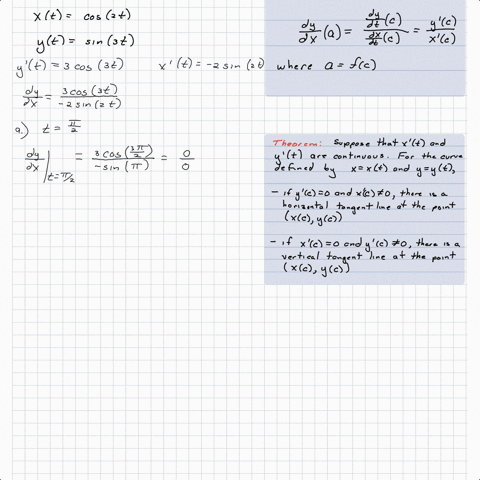 x(t) = cos(2t)
y(t) = sin(3t)
y'(t) = 3 cos(3t)    x'(t) = -2 sin(2t)
dy/dx = 3 cos(3t) / -2 sin(2t)
a.) t = π/2
dy/dx |t=π/2 = 3 cos(3π/2) / -sin(π) = 0/0
dy/dx (a) = dy/dt (c) / dx/dt (c) = y'(c) / x'(c)
where a = f(c)
Theorem: Suppose that x'(t) and
y'(t) are continuous. For the curve
defined by x=x(t) and y=y(t),
- if y'(c)=0 and x'(c)≠0, there is a
horizontal tangent line at the point
(x(c), y(c))
- if x'(c)=0 and y'(c)≠0, there is a
vertical tangent line at the point
(x(c), y(c))